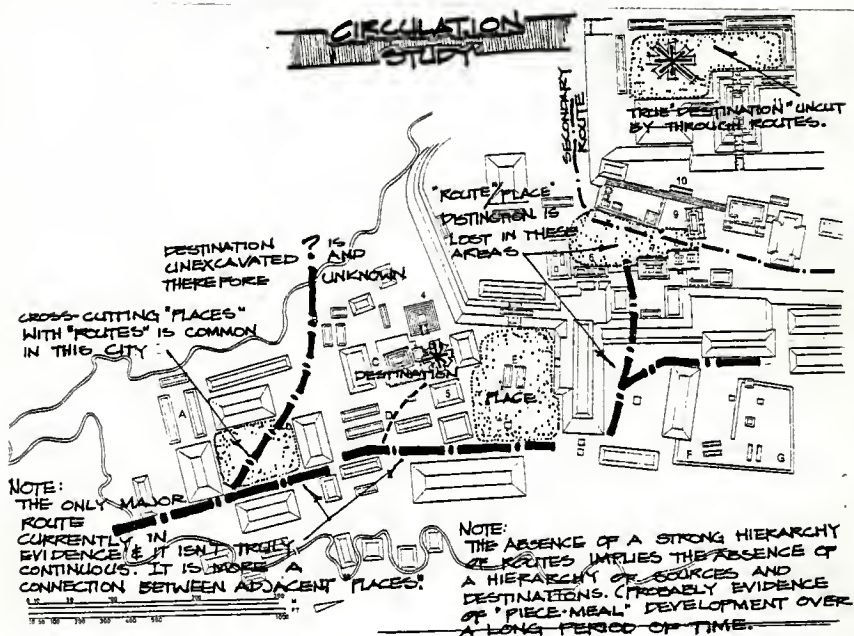 CIRCULATION
STUDY
SECONDARY
ROUTE
TRUE "DESTINATION" UNCUT
BY THROUGH ROUTES.
"ROUTE"/"PLACE"
DISTINCTION IS
LOST IN THESE
AREAS
10
9
6
DESTINATION ? IS
UNEXCAVATED AND
THEREFORE UNKNOWN
CROSS-CUTTING "PLACES"
WITH "ROUTES" IS COMMON
IN THIS CITY
4
C
DESTINATION
5
E
"PLACE"
A
F
G
NOTE:
THE ONLY MAJOR
ROUTE
CURRENTLY IN
EVIDENCE & IT ISN'T TRULY
CONTINUOUS. IT IS MORE A
CONNECTION BETWEEN ADJACENT "PLACES".
NOTE:
THE ABSENCE OF A STRONG HIERARCHY
OF ROUTES IMPLIES THE ABSENCE OF
A HIERARCHY OF SOURCES AND
DESTINATIONS. (PROBABLY EVIDENCE
OF "PIECE-MEAL" DEVELOPMENT OVER
A LONG PERIOD OF TIME.
FT